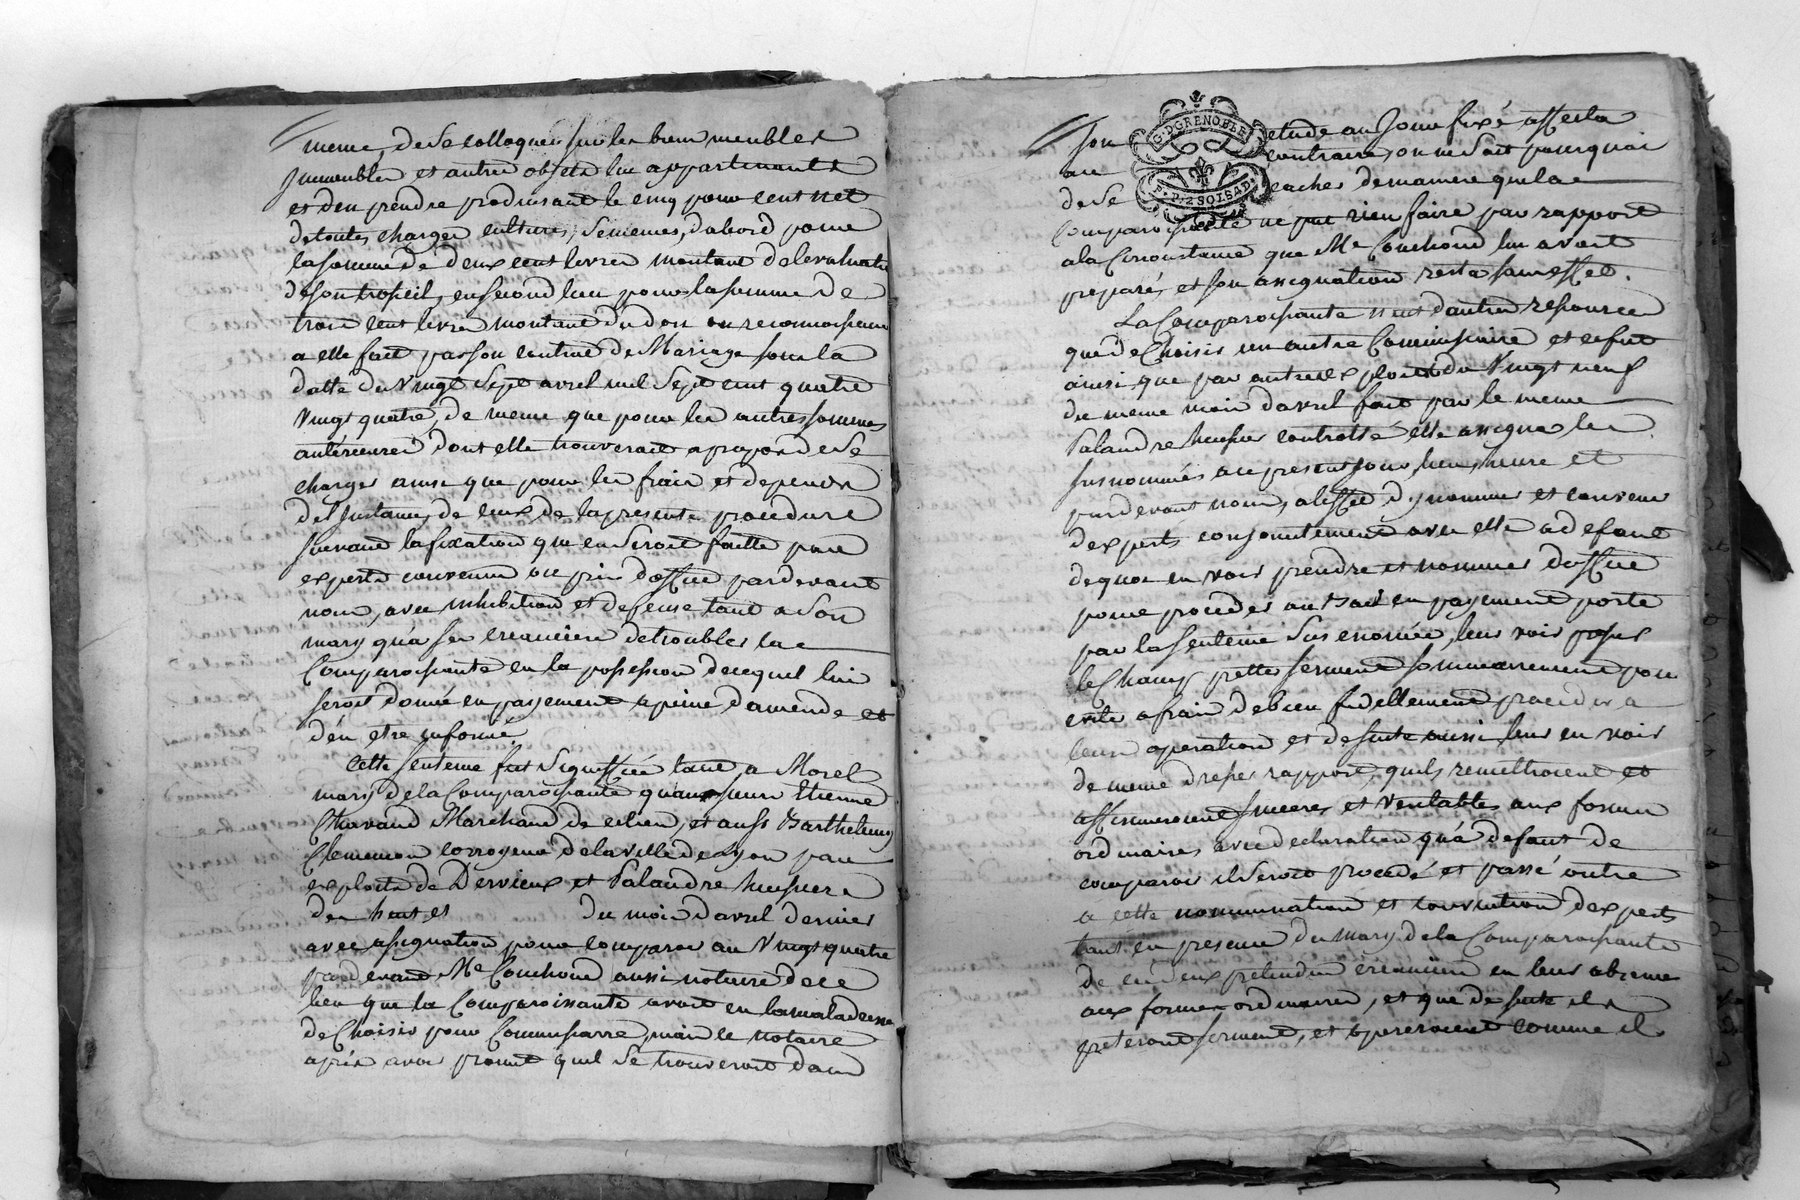 meme, de se colloquer sur les biens meubles
immeubles et autres objets lui appartenants
et d'en prendre produisant le cinq pour cent net
de toutes charges cultures, semences, d'abord pour
la somme de deux cent livres montant de levaluation
de son trosseil, en second lieu pour la somme de
trois cent livres montant du don ou reconnoissance
a elle fait par son contrat de Mariage sous la
datte du vingt sept avril mil sept cent quatre
vingt quatre, de meme que pour les autres sommes
antérieures dont elle trouveroit a propos de se
charger ainsi que pour les frais et depends
de l'Instance, de ceux de la presente procedure
suivant la fixation qui en seroit faitte par
experts convenus ou pris d'office pardevant
nous, avec inhibitions et defense tant a son
mary qu'a ses creanciers de troubler la
Comparoissante en la possession de ce quil lui
seroit donné en payement a peine d'amende et
d'én etre informé
Cette sentence fut signiffiée tant a Morel
mary de la Comparoissante qu'aux sieurs Etienne
Chavand Marchand de ce lieu, et aussi Barthelemy
Clemencon corroyeur de la ville de Lyon par
exploits de Dervieux et Palandre huissiers
des huit et du mois d'avril dernier
avec assignation pour comparoir au vingt quatre
pardevant Me Couchoud aussi notaire de ce
lieu que la Comparoissante avoit eu la maladresse
de Choisir pour Commissaire, mais le notaire
après avoir promit quil se trouveroit dans
G. D GRENOBLE
P. P. 2 SOLS 4 D.
son etude au Jour fixé affecta
au contraire, on ne sait pourquoi
de se cacher de maniere que la
Comparoissante ne put rien faire par rapport
a la Circonstance que Me Couchoud lui avoit
preparé, et son assignation resta sans effet.
La Comparoissante n'eut d'autres resources
que de Choisir un autre Commissaire et ce fut
ainsi que par autre exploit du vingt neuf
du meme mois d'avril fait par le meme
Palandre huissier controllé elle assigna les
susnommés au present jour, lieu, heure et
pardevant nous, a l'effet d'y nommer et convenir
d'experts conjointement avec elle a defaut
de quoi en voir prendre et nommer d'office
pour proceder au Bail en payement porté
par la sentence sus enoncée, leur voir
le Champ pretter serment
afrain de bien fidellement proceder a
leurs operation et de suite aussi leur en voir
de meme dresser rapport, quils remettroient et
affirmeroient sincere et veritables aux formes
ordinaires avec declaration qu'a defaut de
comparoir il seroit procedé et passé outre
a cette nommination et convention d'experts
tant en presence du mary de la Comparoissante
de ces deux pretendus creanciers en leur absence
aux formes ordinaires, et que de suite ils
preteront serment, et opereroient comme il